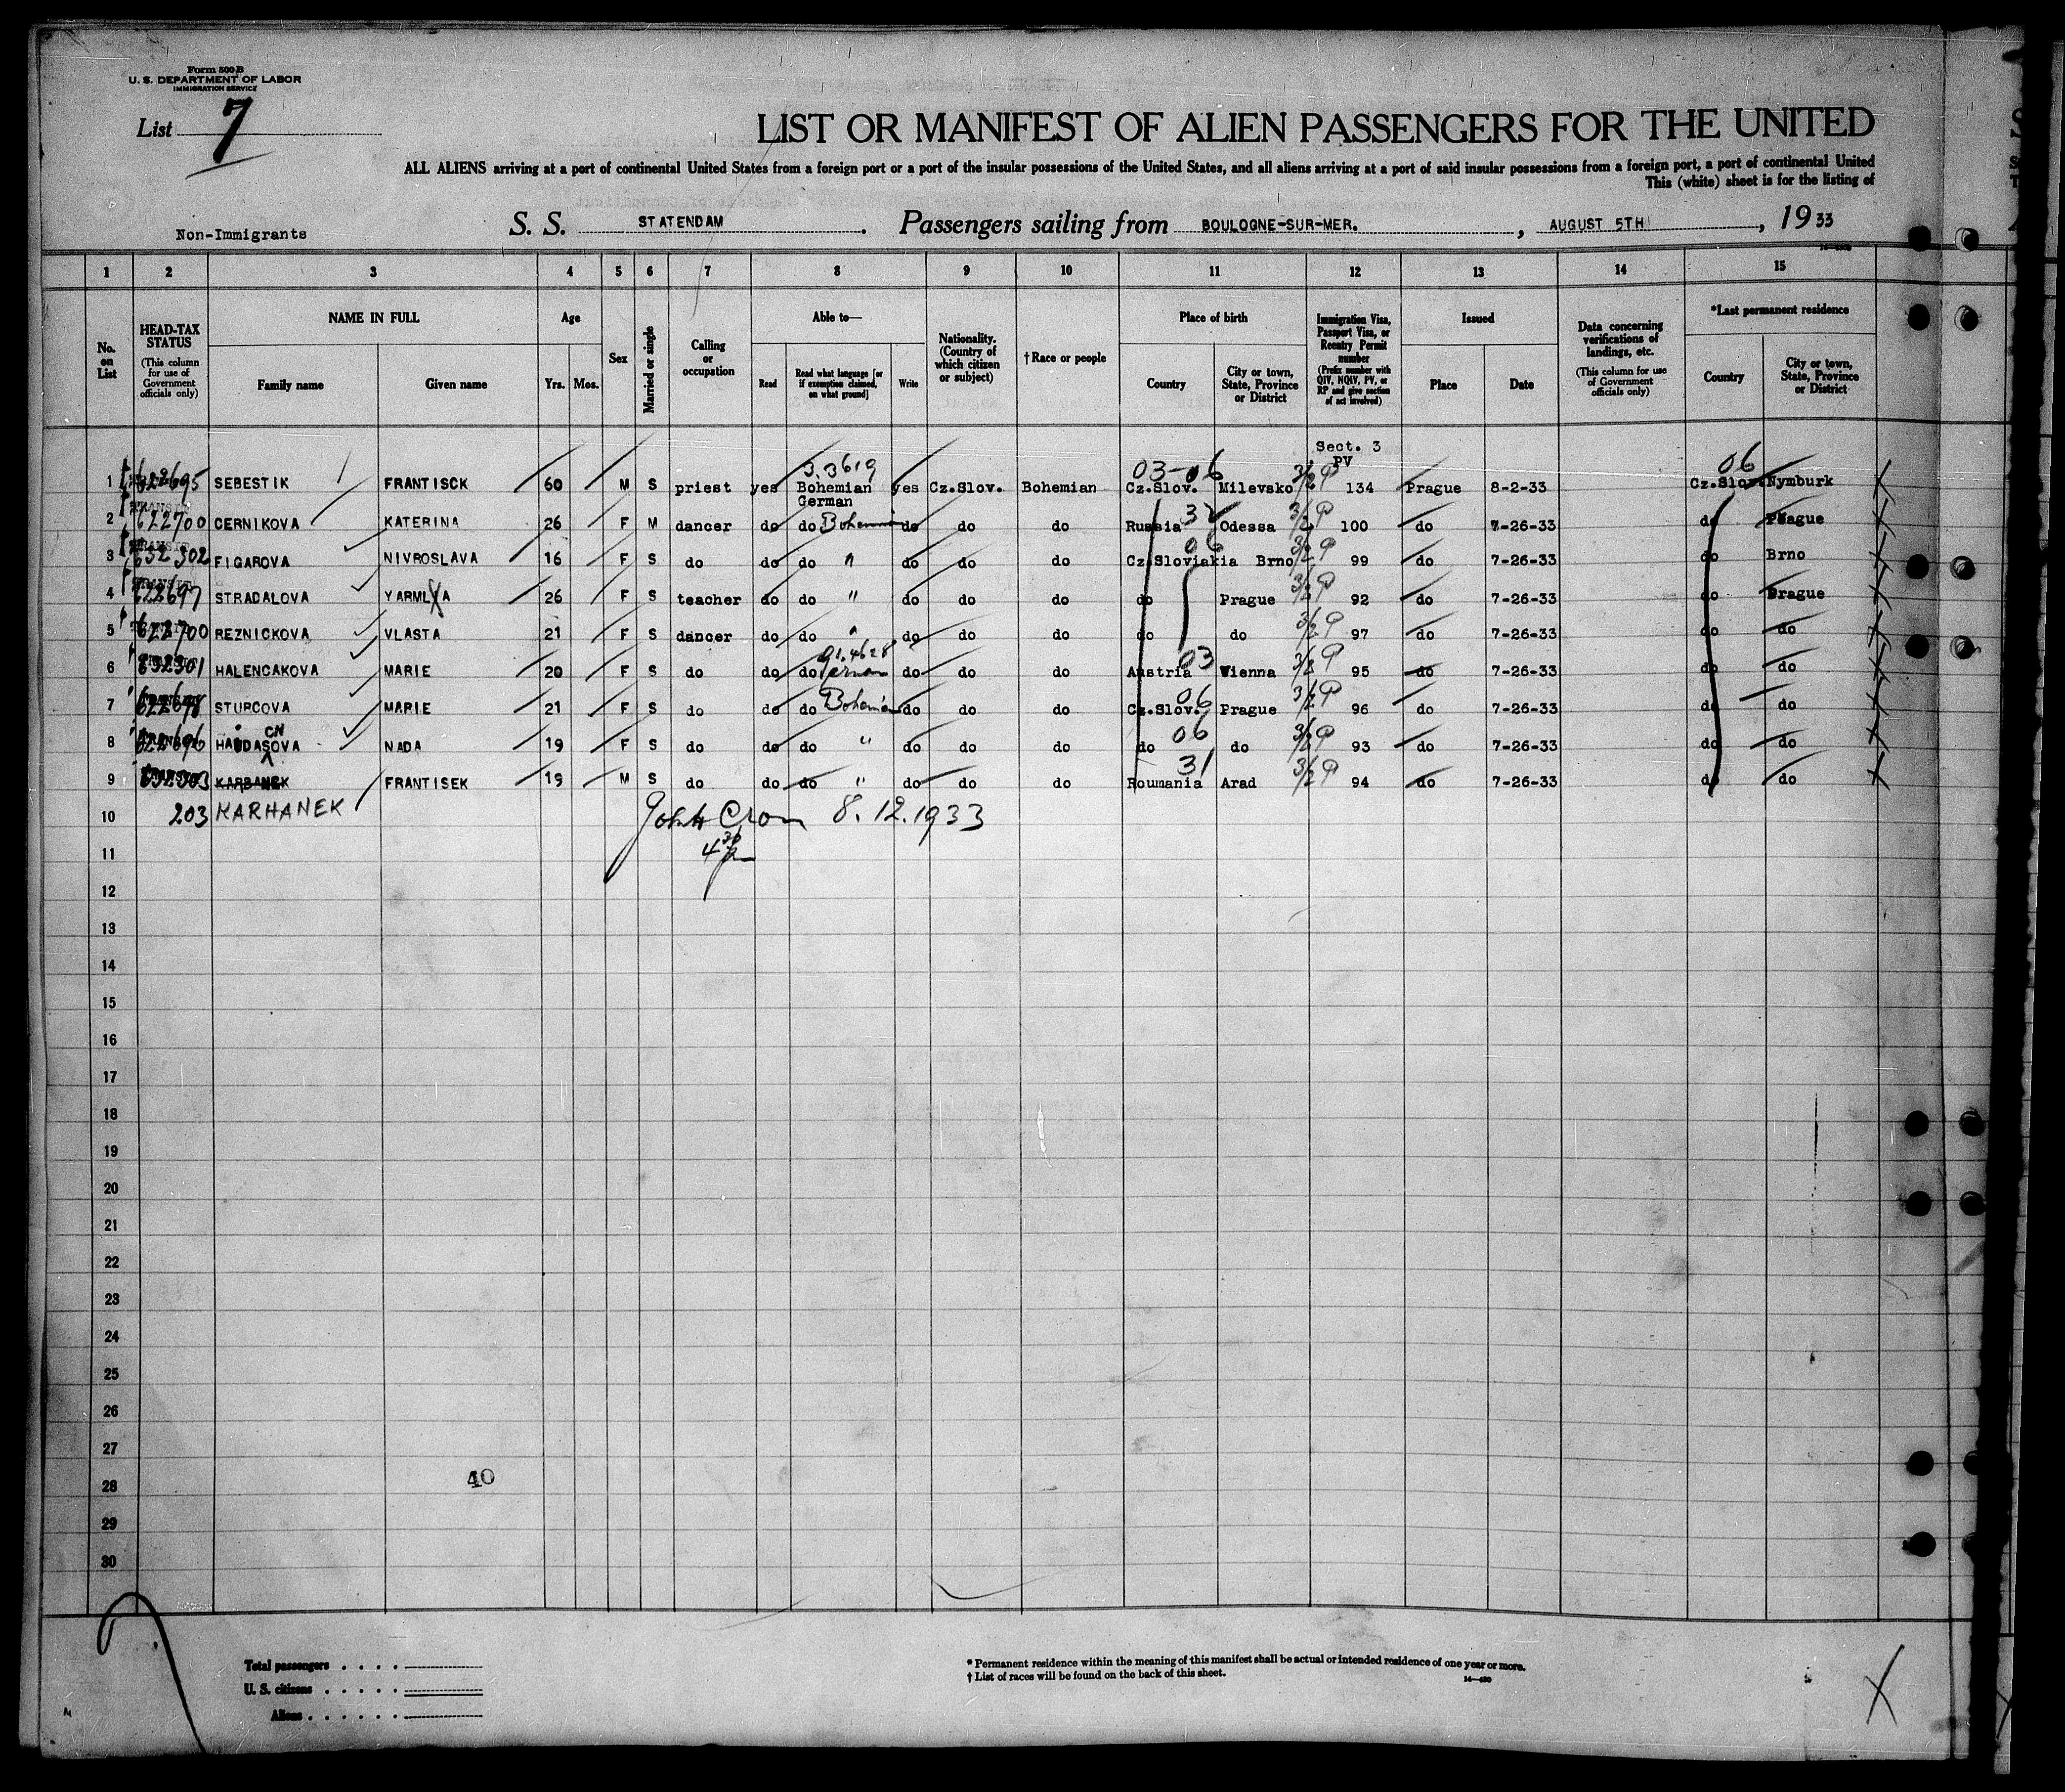 Form 500-B
U. S. DEPARTMENT OF LABOR
IMMIGRATION SERVICE
List 7
LIST OR MANIFEST OF ALIEN PASSENGERS FOR THE UNITED
ALL ALIENS arriving at a port of continental United States from a foreign port or a port of the insular possessions of the United States, and all aliens arriving at a port of said insular possessions from a foreign port, a port of continental United
This (white) sheet is for the listing of
Non-Immigrants S. S. STATENDAM . Passengers sailing from BOULOGNE-SUR-MER. , AUGUST 5TH , 19 33
1 2 3 4 5 6 7 8 9 10 11 12 13 14 15
No. on List
HEAD-TAX STATUS (This column for use of Government officials only)
NAME IN FULL
Family name Given name
Age
Yrs. Mos.
Sex
Married or single
Calling or occupation
Able to—
Read Read what language [or if exemption claimed, on what ground] Write
Nationality. (Country of which citizen or subject)
†Race or people
Place of birth
Country City or town, State, Province or District
Immigration Visa, Passport Visa, or Reentry Permit number (Prefix number with QIV, NQIV, PV, or RP and give section of act involved)
Issued
Place Date
Data concerning verifications of landings, etc. (This column for use of Government officials only)
*Last permanent residence
Country City or town, State, Province or District
Sect. 3
PV
3.3619 03-06 06
1 622695 SEBESTIK FRANTISCK 60 M S priest yes Bohemian German yes Cz.Slov. Bohemian Cz.Slov. Milevsko 3/2 P 134 Prague 8-2-33 Cz.Slov. Nymburk
2 622700 CERNIKOVA KATERINA 26 F M dancer do do Bohemian do do do Russia Odessa 3/2 P 100 do 7-26-33 do Prague
3 632302 FIGAROVA NIVROSLAVA 16 F S do do do " do do do Cz Sloviakia Brno 06 3/2 P 99 do 7-26-33 do Brno
4 622697 STRADALOVA YARMILA 26 F S teacher do do " do do do do Prague 3/2 P 92 do 7-26-33 do Prague
5 622700 REZNICKOVA VLASTA 21 F S dancer do do " do do do do do 3/2 P 97 do 7-26-33 do do
6 632301 HALENCAKOVA MARIE 20 F S do do do German do do do Austria 03 Wienna 3/2 P 95 do 7-26-33 do do
7 622698 STURCOVA MARIE 21 F S do do do Bohemian do do do Cz.Slov. 06 Prague 3/2 P 96 do 7-26-33 do do
CH
8 622696 HAUDASOVA NADA 19 F S do do do " do do do do 06 do 3/2 P 93 do 7-26-33 do do
9 632303 KARBANEK FRANTISEK 19 M S do do do " do do do Roumania 31 Arad 3/2 P 94 do 7-26-33 do do
10 203 KARHANEK John Cron 8.12.1933
11 4 30 p
12
13
14
15
16
17
18
19
20
21
22
23
24
25
26
27
28 40
29
30
Total passengers . . . .
U. S. citizens . . . . .
Aliens . . . . . .
* Permanent residence within the meaning of this manifest shall be actual or intended residence of one year or more.
† List of races will be found on the back of this sheet.
14—430